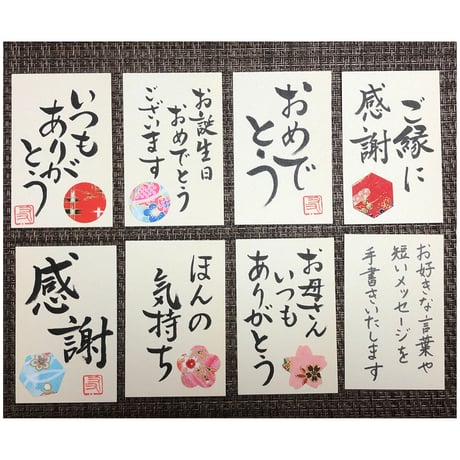 いつも
ありがとう
お誕生日
おめでとう
ございます
おめで
とう
ご縁に
感謝
感謝
ほんの
気持ち
お母さん
いつも
ありがとう
お好きな言葉や
短いメッセージを
手書きいたします